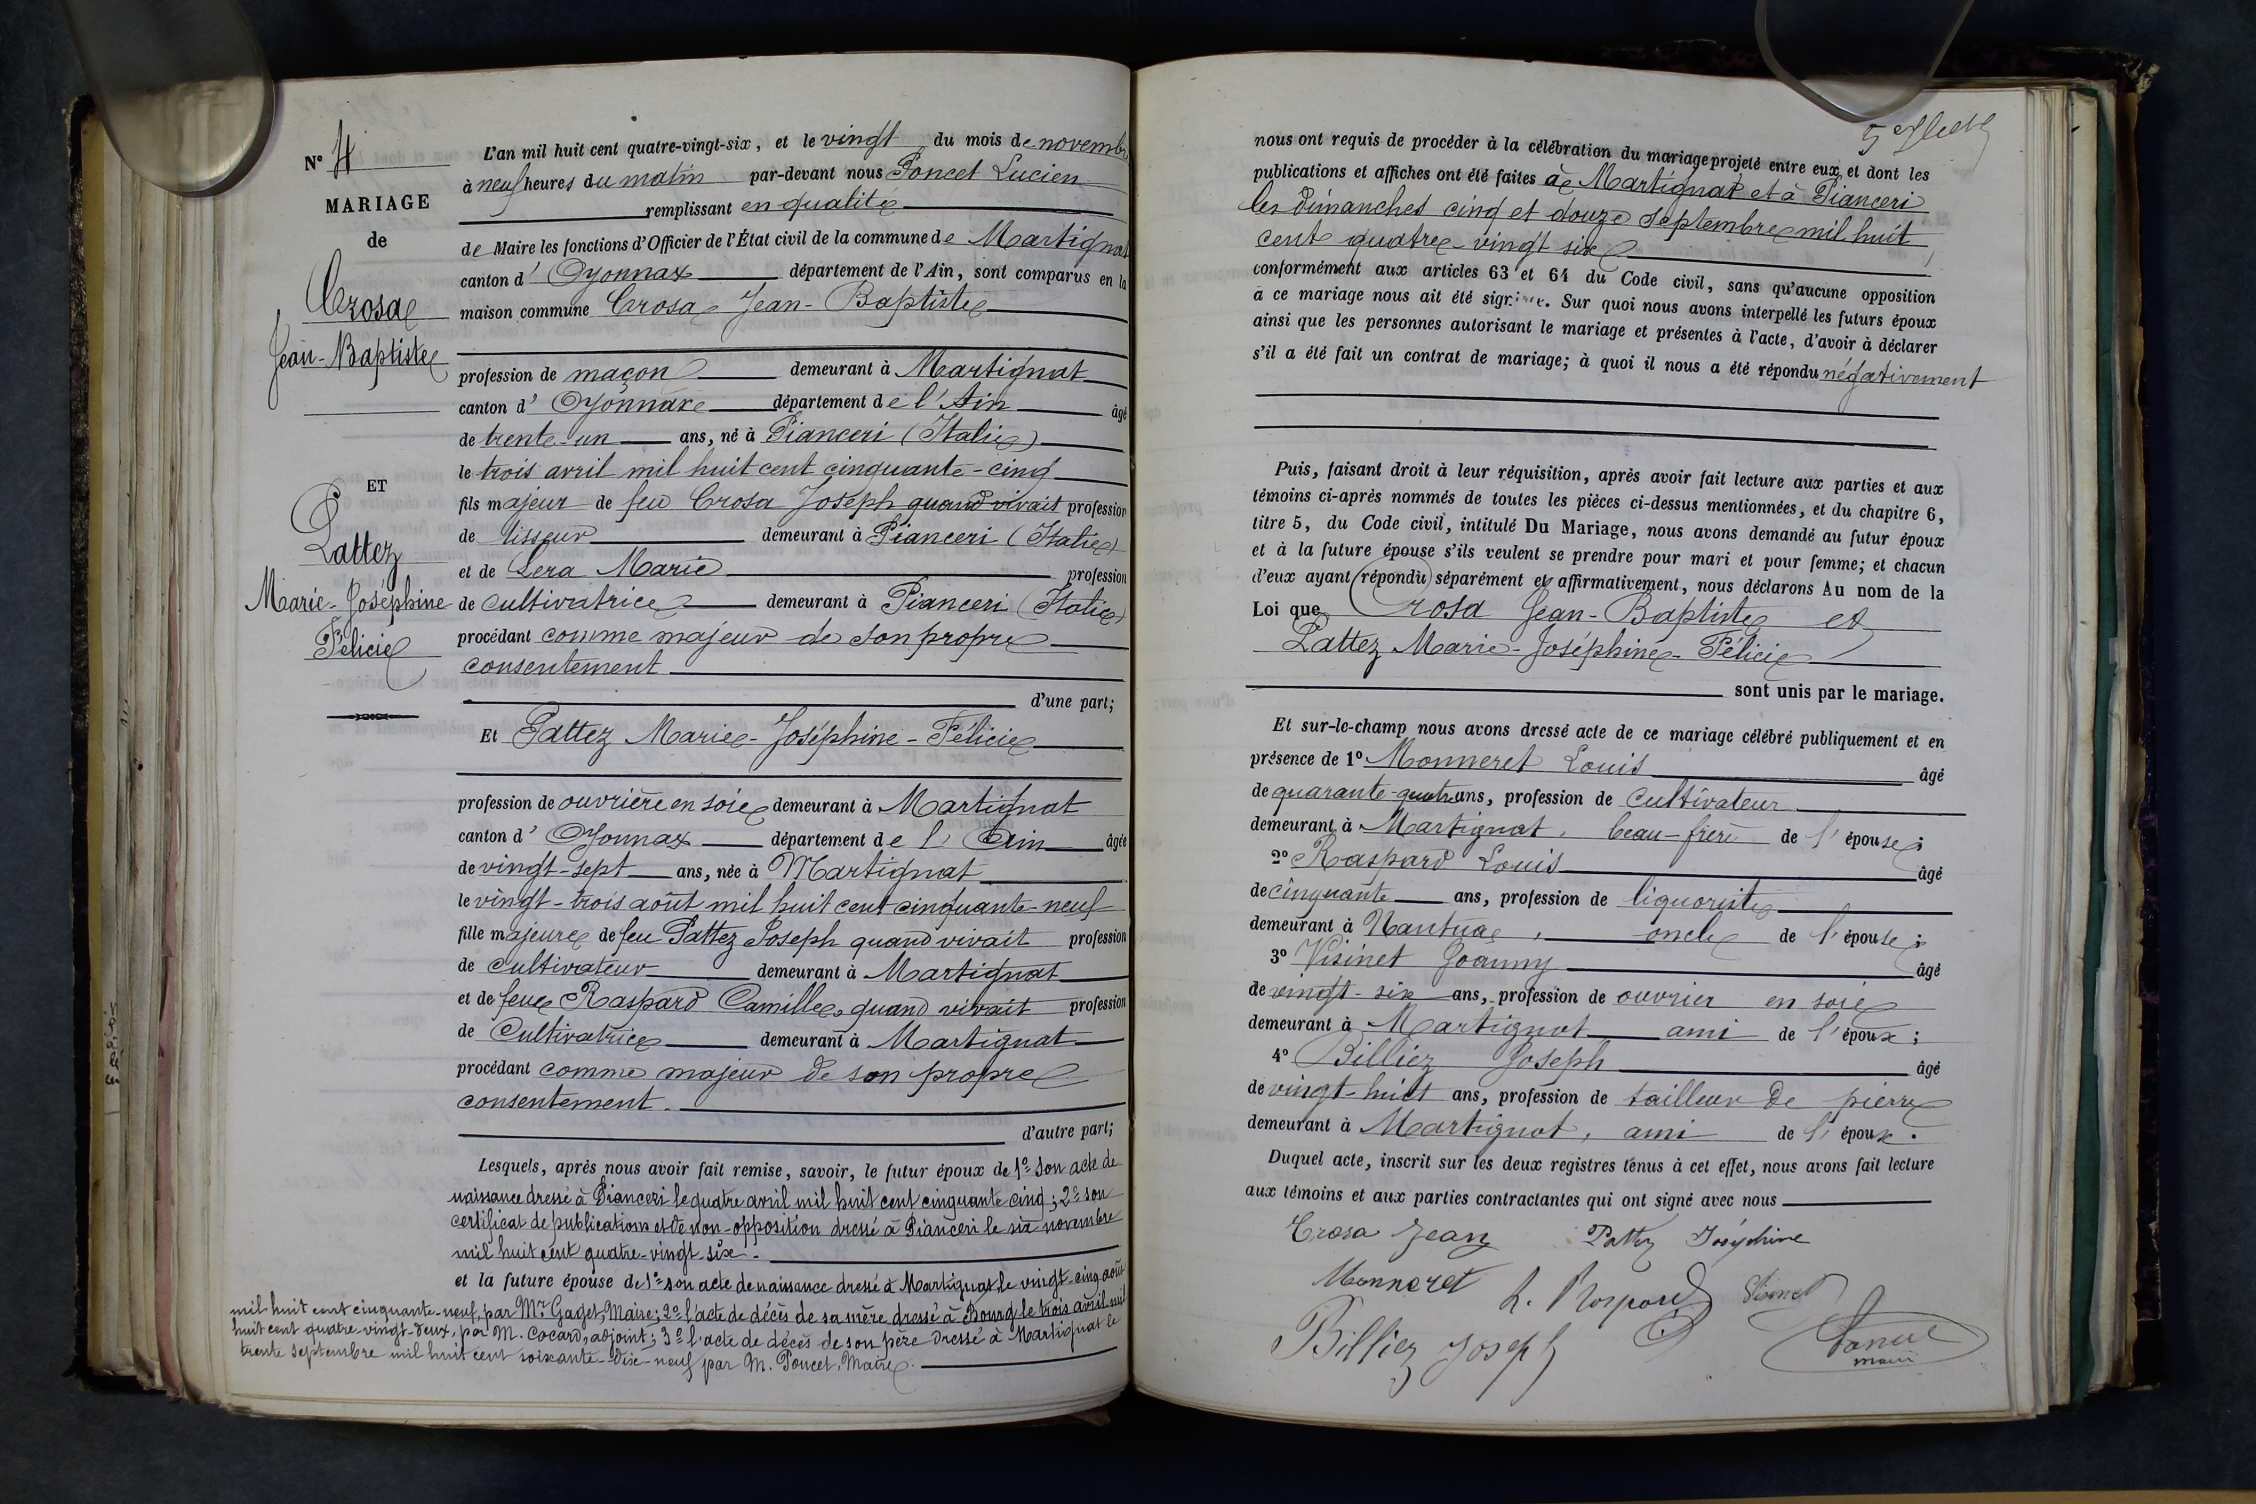 N° 4
MARIAGE
de
Crosa
Jean-Baptiste
ET
Pattez
Marie-Joséphine
Félicie
L'an mil huit cent quatre-vingt-six, et le vingt du mois de novembre
à neuf heures du matin par-devant nous Poncet Lucien
remplissant en qualité
de Maire les fonctions d'Officier de l'État civil de la commune de Martignat
canton d' Oyonnax département de l'Ain, sont comparus en la
maison commune Crosa Jean-Baptiste
profession de maçon demeurant à Martignat
canton d' Oyonnax département de l'Ain âgé
de trente-un ans, né à Pianceri (Italie)
le trois avril mil huit cent cinquante-cinq
fils majeur de feu Crosa Joseph quand vivait profession
de tisseur demeurant à Pianceri (Italie)
et de Lera Marie profession
de cultivatrice demeurant à Pianceri (Italie)
procédant comme majeur de son propre
consentement
d'une part;
Et Pattez Marie-Joséphine-Félicie
profession de ouvrière en soie demeurant à Martignat
canton d' Oyonnax département de l'Ain âgée
de vingt-sept ans, née à Martignat
le vingt-trois août mil huit cent cinquante-neuf
fille majeure de feu Pattez Joseph quand vivait profession
de cultivateur demeurant à Martignat
et de feue Raspard Camille, quand vivait profession
de Cultivatrice demeurant à Martignat
procédant comme majeur de son propre
consentement.
d'autre part;
Lesquels, après nous avoir fait remise, savoir, le futur époux de 1° son acte de
naissance dressé à Pianceri le quatre avril mil huit cent cinquante cinq; 2° son
certificat de publications et de non-opposition dressé à Pianceri le six novembre
mil huit cent quatre-vingt-six.
et la future épouse de 1° son acte de naissance dressé à Martignat le vingt-cinq août
mil huit cent cinquante-neuf, par Mr Gaget, Maire; 2° l'acte de décès de sa mère dressé à Bourg le trois avril mil
huit cent quatre-vingt-deux, par M. Cocard, adjoint; 3° l'acte de décès de son père dressé à Martignat le
trente septembre mil huit cent soixante-dix-neuf par M. Poncet, Maire.
nous ont requis de procéder à la célébration du mariage projeté entre eux et dont les
publications et affiches ont été faites à Martignat et à Pianceri
les dimanches cinq et douze septembre mil huit
cent quatre-vingt six
conformément aux articles 63 et 64 du Code civil, sans qu'aucune opposition
à ce mariage nous ait été signifiée. Sur quoi nous avons interpellé les futurs époux
ainsi que les personnes autorisant le mariage et présentes à l'acte, d'avoir à déclarer
s'il a été fait un contrat de mariage; à quoi il nous a été répondu négativement
Puis, faisant droit à leur réquisition, après avoir fait lecture aux parties et aux
témoins ci-après nommés de toutes les pièces ci-dessus mentionnées, et du chapitre 6,
titre 5, du Code civil, intitulé Du Mariage, nous avons demandé au futur époux
et à la future épouse s'ils veulent se prendre pour mari et pour femme; et chacun
d'eux ayant répondu séparément et affirmativement, nous déclarons Au nom de la
Loi que Crosa Jean-Baptiste et
Pattez Marie-Joséphine-Félicie
sont unis par le mariage.
Et sur-le-champ nous avons dressé acte de ce mariage célébré publiquement et en
présence de 1° Monneret Louis âgé
de quarante-quatre ans, profession de Cultivateur
demeurant à Martignat, beau-frère de l'épouse;
2° Raspard Louis âgé
de cinquante ans, profession de liquoriste
demeurant à Nantua, oncle de l'épouse;
3° Visinet Joanny âgé
de vingt-six ans, profession de ouvrier en soie
demeurant à Martignat ami de l'époux;
4° Billiez Joseph âgé
de vingt-huit ans, profession de tailleur de pierre
demeurant à Martignat, ami de l'époux.
Duquel acte, inscrit sur les deux registres tenus à cet effet, nous avons fait lecture
aux témoins et aux parties contractantes qui ont signé avec nous
Crosa Jean Pattez Joséphine
Monneret L. Raspard Visinet
Billiez Joseph Poncet
maire